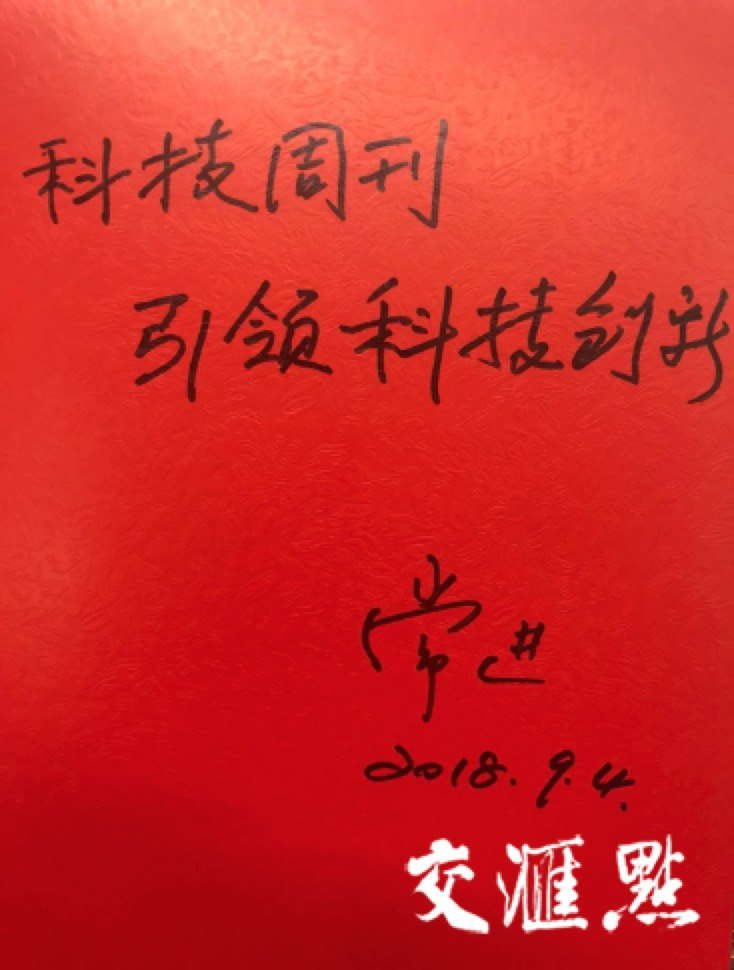 科技周刊
引领科技创新
常进
2018.9.4.
交滙點